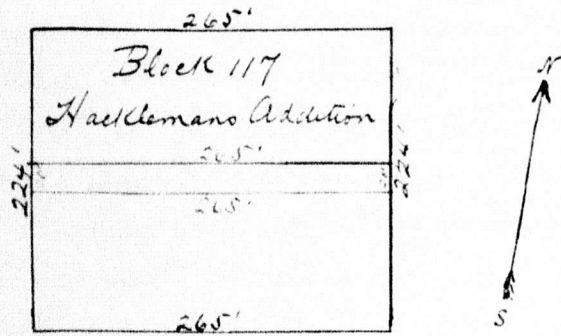 265'
Block 117
Hacklemans Addition
265'
224'
224'
265'
265'
N
S